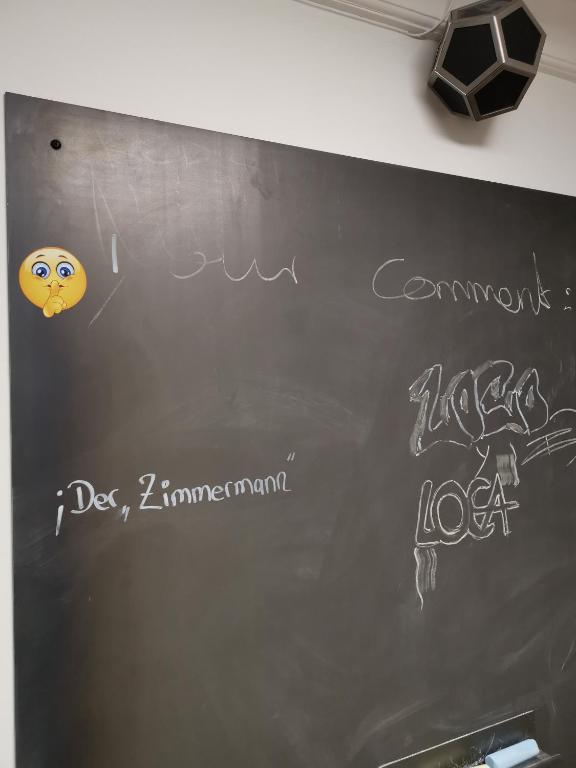 Your Comment:
LOCO
y
LOCA
¡Der „Zimmermann“